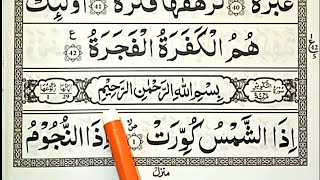 غَبَرَةٌ ۝٤٠ تَرْهَقُهَا قَتَرَةٌ ۝٤١ اُولٰٓئِكَ
هُمُ الْكَفَرَةُ الْفَجَرَةُ ۝٤٢
بِسْمِ اللّٰهِ الرَّحْمٰنِ الرَّحِيْمِ
اِذَا الشَّمْسُ كُوِّرَتْ ۝١ وَاِذَا النُّجُوْمُ
منزل